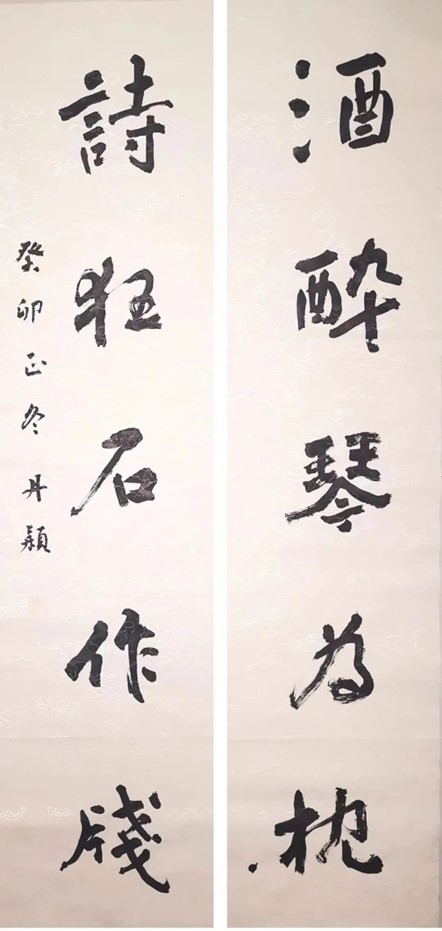 酒醉琴為枕
詩狂石作牋
癸卯正冬丹穎